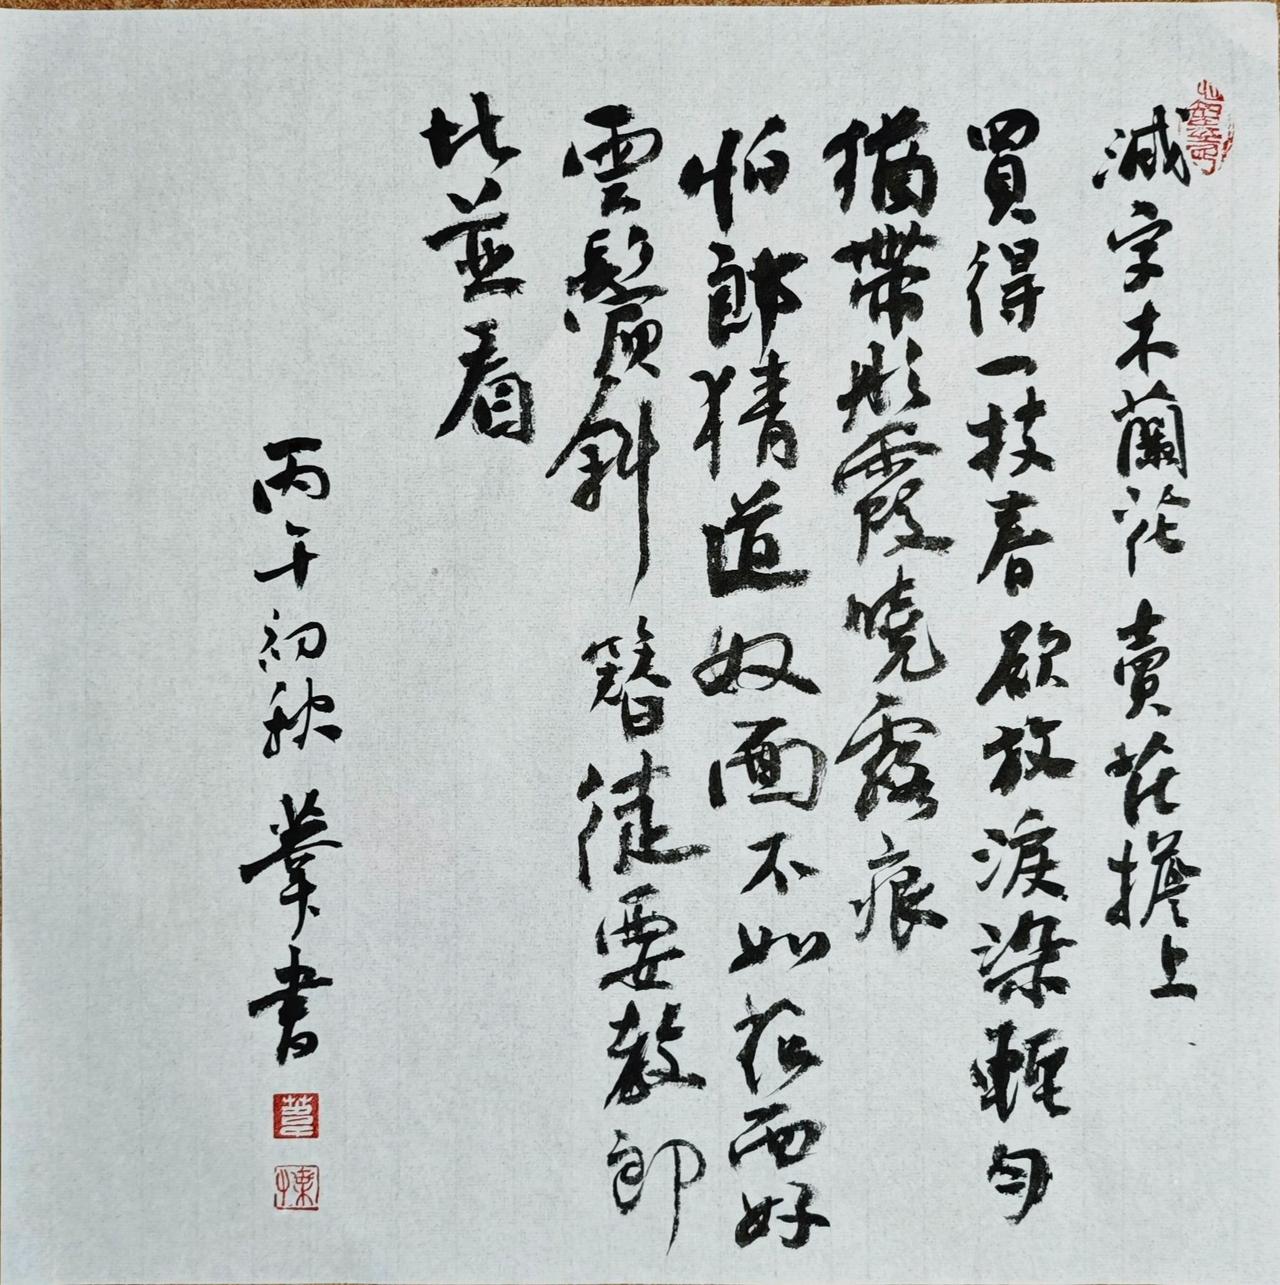 減字木蘭花 賣花擔上
買得一枝春欲放淚染輕勻
猶帶彤霞曉露痕
怕郎猜道奴面不如花面好
雲鬢斜簪徒要教郎
比並看
丙午初秋 書